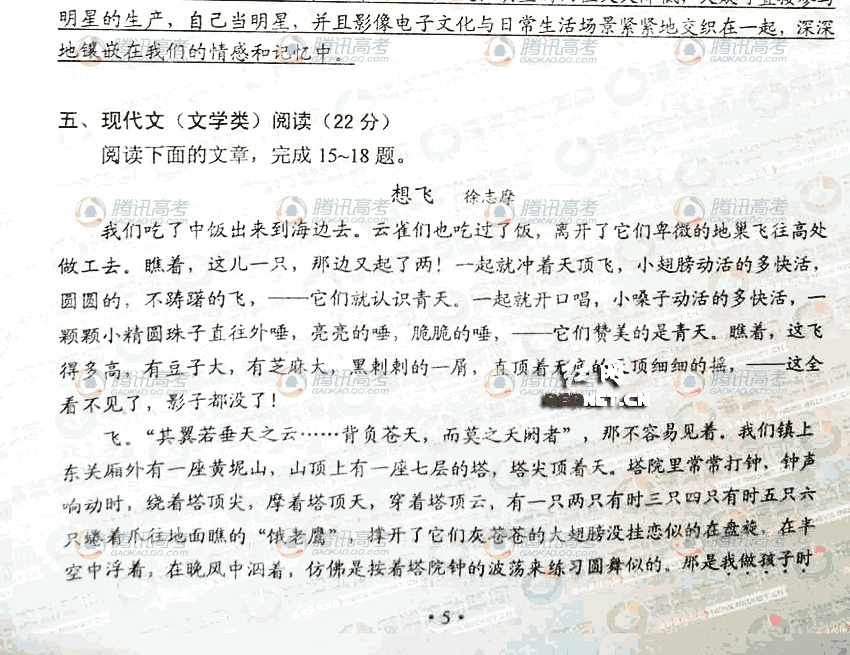 明星的生产，自己当明星，并且影像电子文化与日常生活场景紧紧地交织在一起，深深
地镶嵌在我们的情感和记忆中。
五、现代文（文学类）阅读（22分）
阅读下面的文章，完成15~18题。
想飞 徐志摩
我们吃了中饭出来到海边去。云雀们也吃过了饭，离开了它们卑微的地巢飞往高处
做工去。瞧着，这儿一只，那边又起了两！一起就冲着天顶飞，小翅膀动活的多快活，
圆圆的，不踌躇的飞，——它们就认识青天。一起就开口唱，小嗓子动活的多快活，一
颗颗小精圆珠子直往外唾，亮亮的唾，脆脆的唾，——它们赞美的是青天。瞧着，这飞
得多高，有豆子大，有芝麻大，黑刺刺的一屑，直顶着无底的天顶细细的摇，——这全
看不见了，影子都没了！
飞。“其翼若垂天之云……背负苍天，而莫之夭阏者”，那不容易见着。我们镇上
东关厢外有一座黄坭山，山顶上有一座七层的塔，塔尖顶着天。塔院里常常打钟，钟声
响动时，绕着塔顶尖，摩着塔顶天，穿着塔顶云，有一只两只有时三只四只有时五只六
只蜷着爪往地面瞧的“饿老鹰” 撑开了它们灰苍苍的大翅膀没挂恋似的在盘旋，在半
空中浮着，在晚风中泅着，仿佛是按着塔院钟的波荡来练习圆舞似的。那是我做孩子时
·5·
腾讯高考
GAOKAO.QQ.COM
红网
REDNET.CN